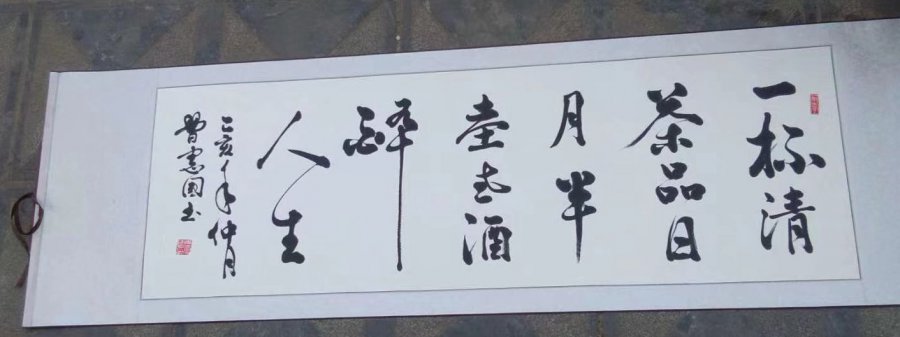 一杯清
茶品日
月半
壶老酒
醉
人生
己亥年仲月
曾憲国书